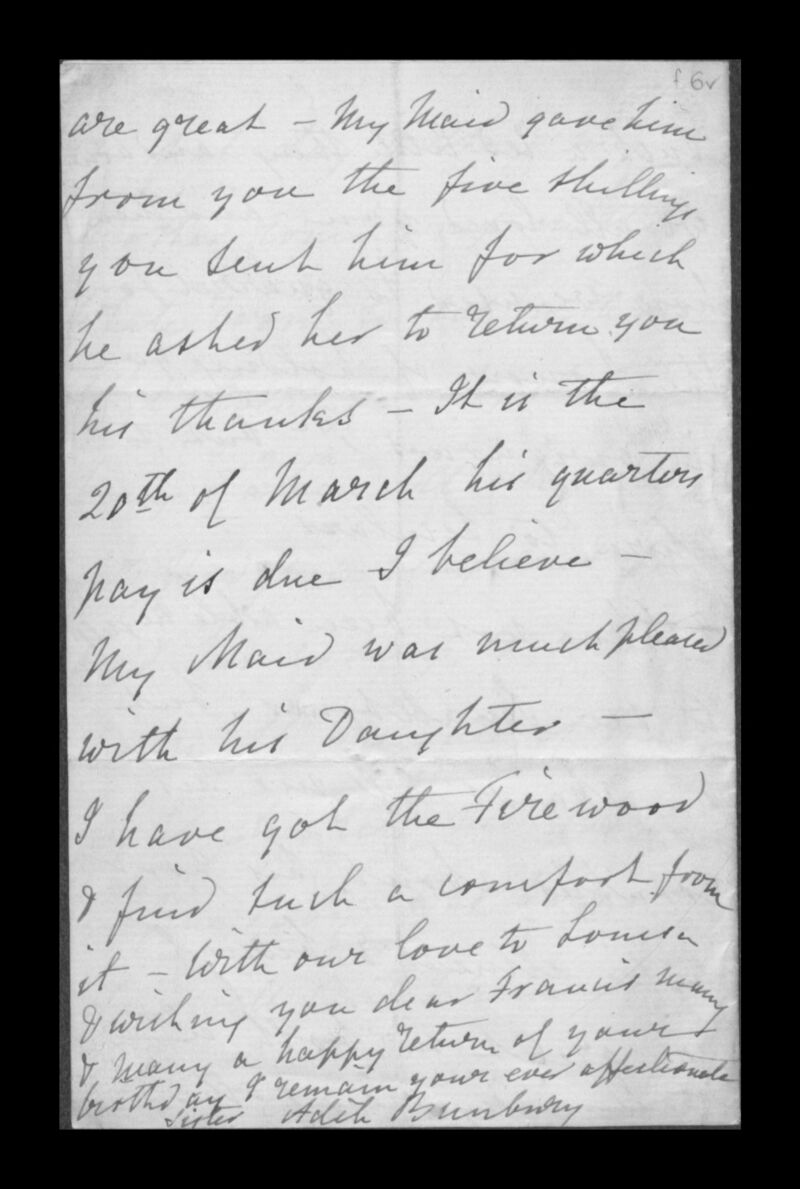 f 6v
are great – My Maid gave him
from you the five shillings
you sent him for which
he asked her to return you
his thanks – It is the
20th of March his quarters
pay is due I believe –
My Maid was much pleased
with his Daughter –
I have got the Firewood
& find such a comfort from
it – With our love to Louisa
& wishing you dear Francis many
& many a happy return of your
birthday I remain your ever affectionate
Sister Adile Bunbury